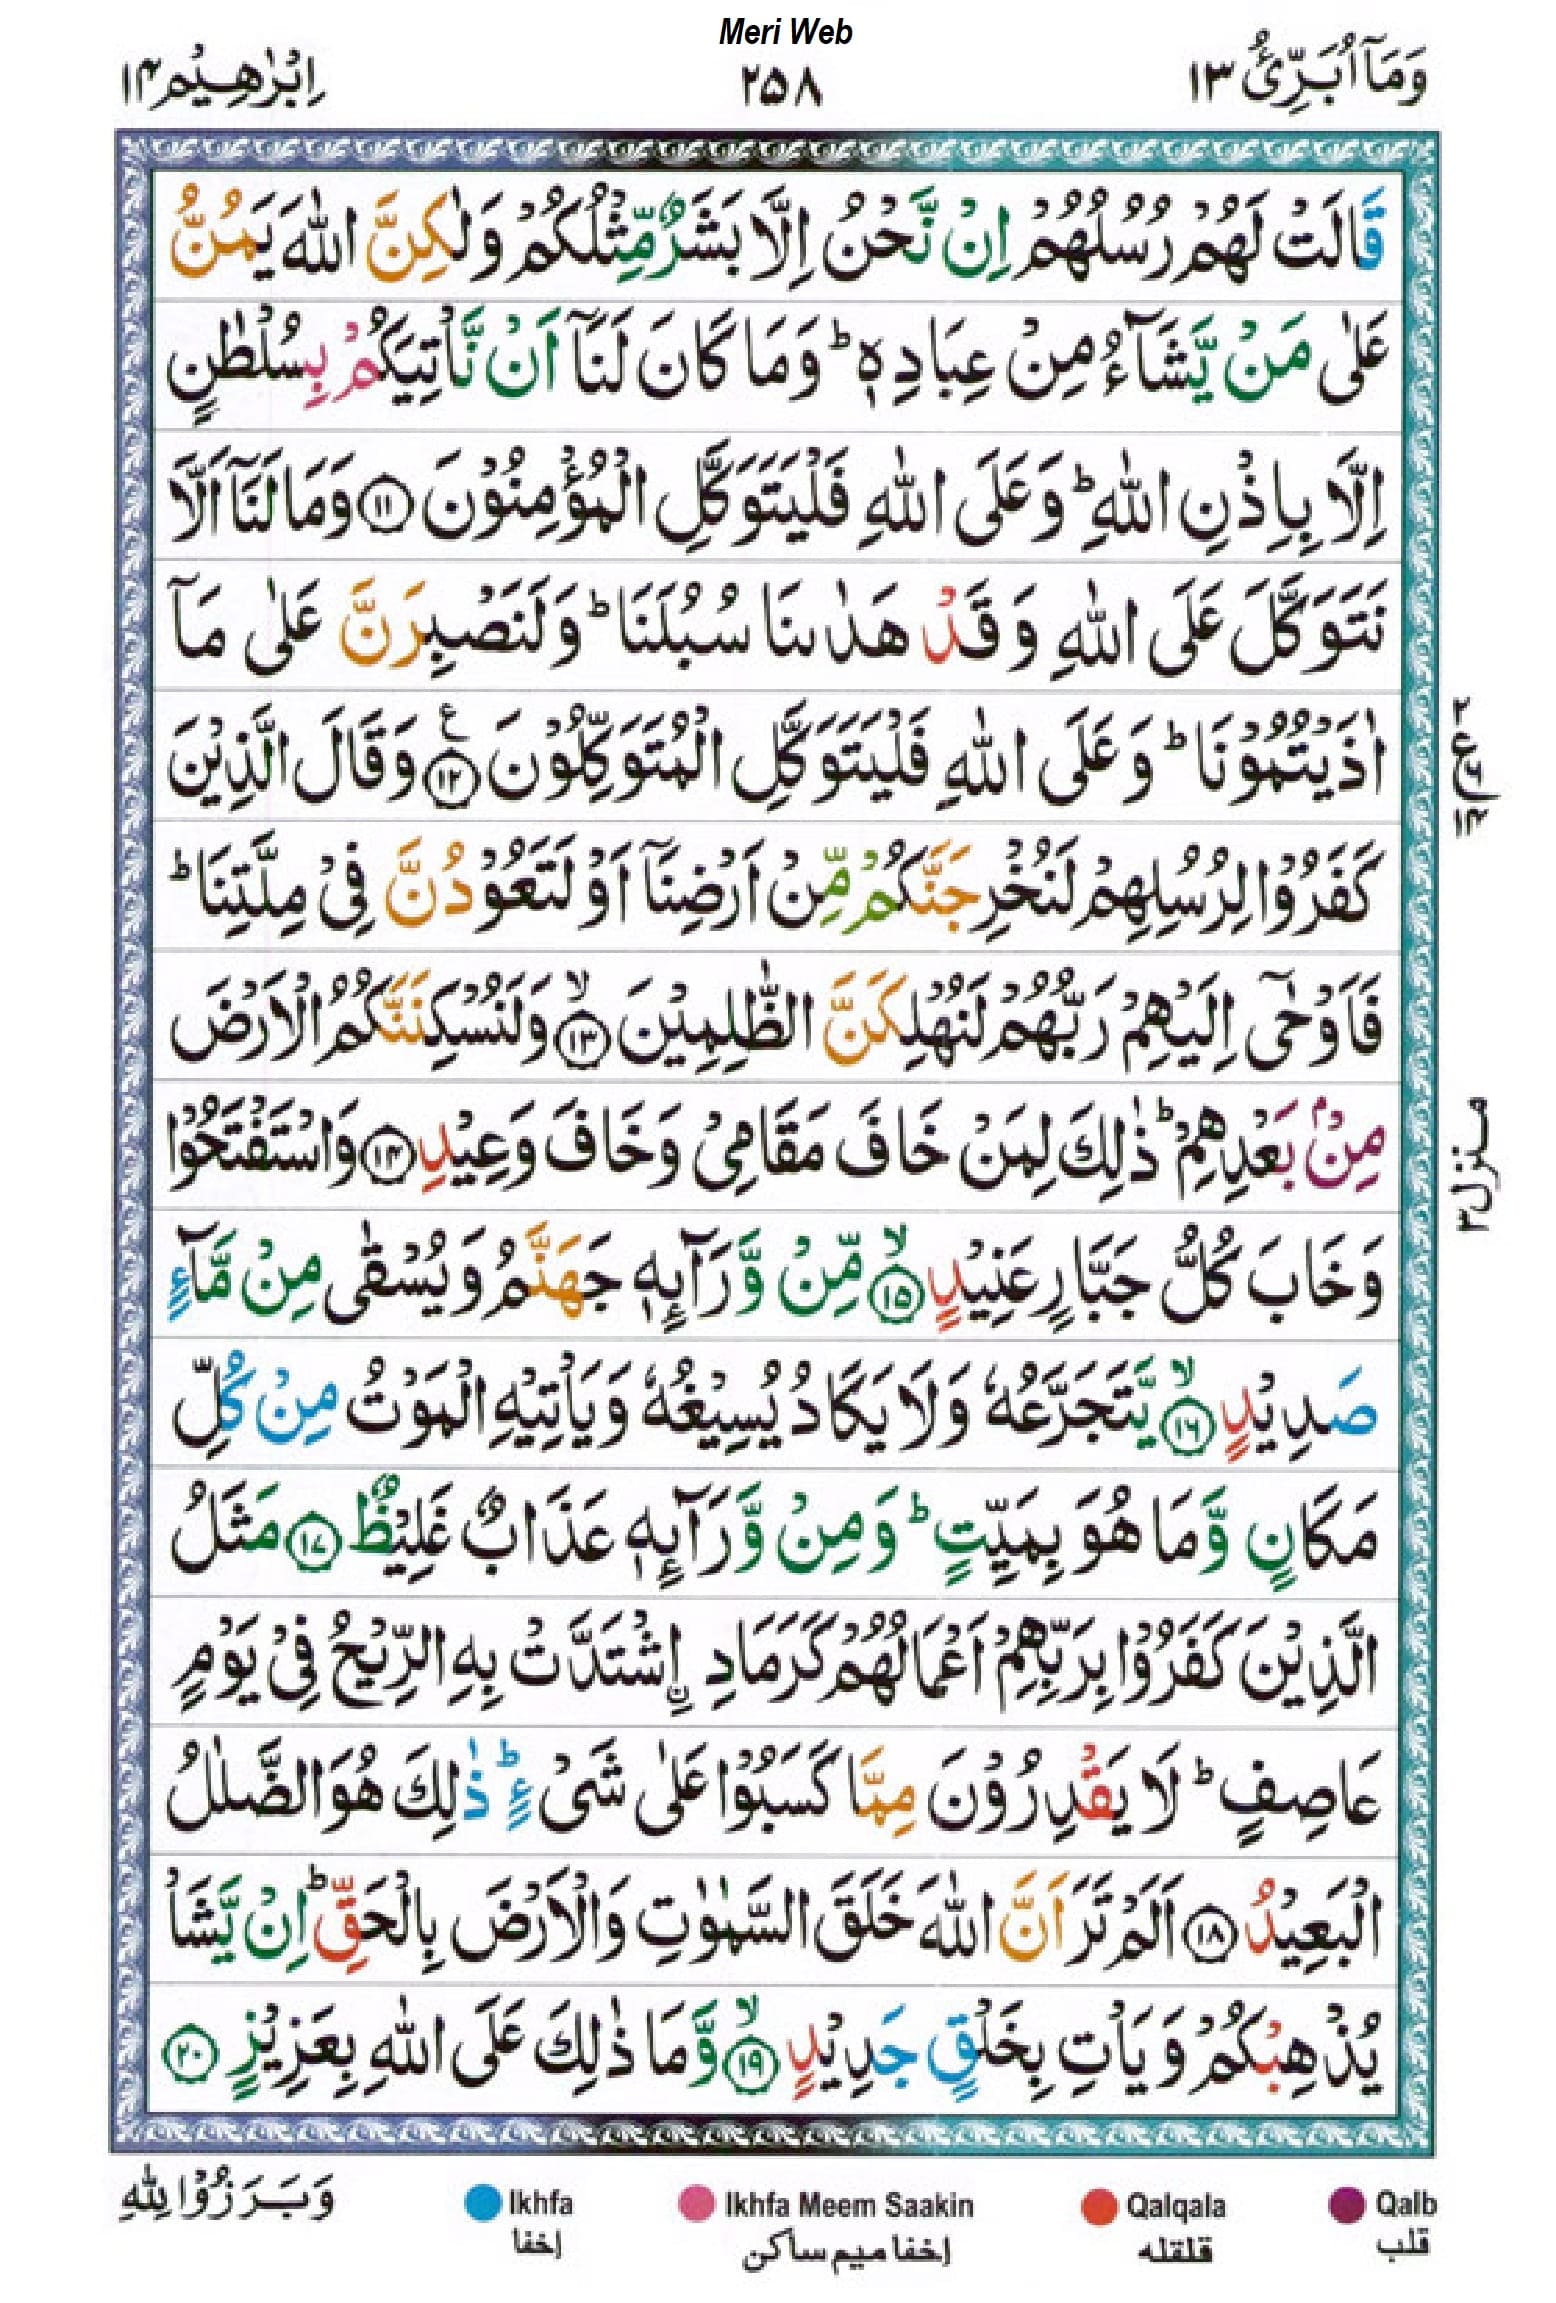 Meri Web
وَمَآ اُبَرِّئُ ١٣
٢٥٨
اِبْرٰهِيْم ١٤
قَالَتْ لَهُمْ رُسُلُهُمْ اِنْ نَّحْنُ اِلَّا بَشَرٌ مِّثْلُكُمْ وَلٰكِنَّ اللّٰهَ يَمُنُّ
عَلٰى مَنْ يَّشَآءُ مِنْ عِبَادِهٖ ؕ وَمَا كَانَ لَنَآ اَنْ نَّاْتِيَكُمْ بِسُلْطٰنٍ
اِلَّا بِاِذْنِ اللّٰهِ ؕ وَعَلَى اللّٰهِ فَلْيَتَوَكَّلِ الْمُؤْمِنُوْنَ ١١ وَمَا لَنَآ اَلَّا
نَتَوَكَّلَ عَلَى اللّٰهِ وَقَدْ هَدٰىنَا سُبُلَنَا ؕ وَلَنَصْبِرَنَّ عَلٰى مَآ
اٰذَيْتُمُوْنَا ؕ وَعَلَى اللّٰهِ فَلْيَتَوَكَّلِ الْمُتَوَكِّلُوْنَ ١٢ ع وَقَالَ الَّذِيْنَ
كَفَرُوْا لِرُسُلِهِمْ لَنُخْرِجَنَّكُمْ مِّنْ اَرْضِنَآ اَوْ لَتَعُوْدُنَّ فِيْ مِلَّتِنَا ؕ
فَاَوْحٰٓى اِلَيْهِمْ رَبُّهُمْ لَنُهْلِكَنَّ الظّٰلِمِيْنَ ١٣ ۙ وَلَنُسْكِنَنَّكُمُ الْاَرْضَ
مِنْۢ بَعْدِهِمْ ؕ ذٰلِكَ لِمَنْ خَافَ مَقَامِيْ وَخَافَ وَعِيْدِ ١٤ وَاسْتَفْتَحُوْا
وَخَابَ كُلُّ جَبَّارٍ عَنِيْدٍ ١٥ ۙ مِّنْ وَّرَآئِهٖ جَهَنَّمُ وَيُسْقٰى مِنْ مَّآءٍ
صَدِيْدٍ ١٦ ۙ يَّتَجَرَّعُهٗ وَلَا يَكَادُ يُسِيْغُهٗ وَيَاْتِيْهِ الْمَوْتُ مِنْ كُلِّ
مَكَانٍ وَّمَا هُوَ بِمَيِّتٍ ؕ وَمِنْ وَّرَآئِهٖ عَذَابٌ غَلِيْظٌ ١٧ مَثَلُ
الَّذِيْنَ كَفَرُوْا بِرَبِّهِمْ اَعْمَالُهُمْ كَرَمَادِ ࣙاشْتَدَّتْ بِهِ الرِّيْحُ فِيْ يَوْمٍ
عَاصِفٍ ؕ لَا يَقْدِرُوْنَ مِمَّا كَسَبُوْا عَلٰى شَيْءٍ ؕ ذٰلِكَ هُوَ الضَّلٰلُ
الْبَعِيْدُ ١٨ اَلَمْ تَرَ اَنَّ اللّٰهَ خَلَقَ السَّمٰوٰتِ وَالْاَرْضَ بِالْحَقِّ ؕ اِنْ يَّشَاْ
يُذْهِبْكُمْ وَيَاْتِ بِخَلْقٍ جَدِيْدٍ ١٩ ۙ وَّمَا ذٰلِكَ عَلَى اللّٰهِ بِعَزِيْزٍ ٢٠
منزل ٣
وَبَرَزُوْا لِلّٰهِ
Ikhfa
إخفا
Ikhfa Meem Saakin
إخفا ميم ساكن
Qalqala
قلقله
Qalb
قلب